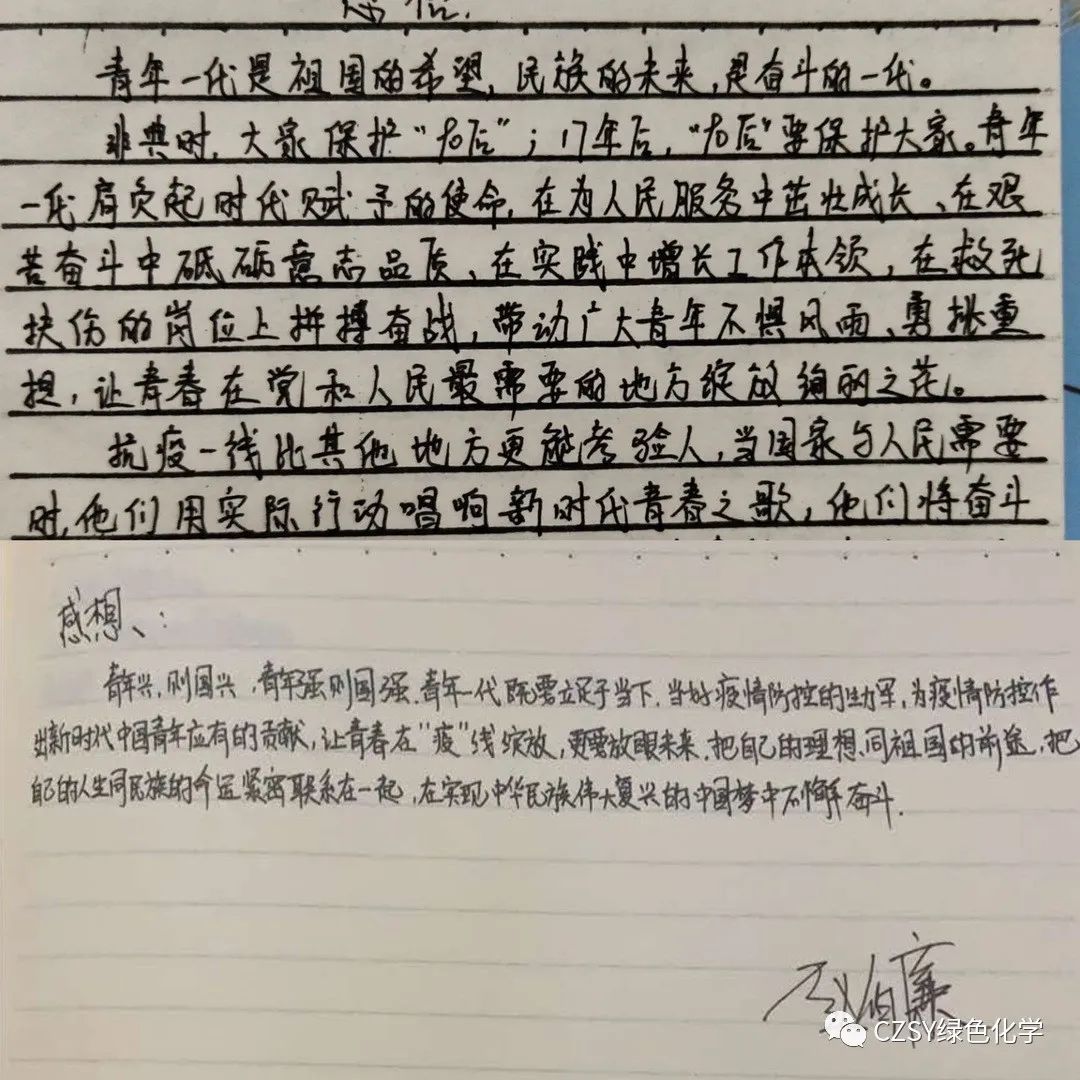 青年一代是祖国的希望,民族的未来,是奋斗的一代。
非典时,大家保护“90后”;17年后,“90后”要保护大家。青年
一代肩负起时代赋予的使命,在为人民服务中茁壮成长、在艰
苦奋斗中砥砺意志品质、在实践中增长工作本领,在救死
扶伤的岗位上拼搏奋战,带动广大青年不惧风雨、勇挑重
担,让青春在党和人民最需要的地方绽放绚丽之花。
抗疫一线比其他地方更能考验人,当国家与人民需要
时,他们用实际行动唱响新时代青春之歌,他们将奋斗
感想、:
青年兴,则国兴,青年强则国强.青年一代既要立足于当下.当好疫情防控的生力军,为疫情防控作
出新时代中国青年应有的贡献,让青春在“疫”线绽放,更要放眼未来.把自己的理想同祖国的前途,把
自己的人生同民族的命运紧密联系在一起,在实现中华民族伟大复兴的中国梦中不懈奋斗.
CZSY绿色化学